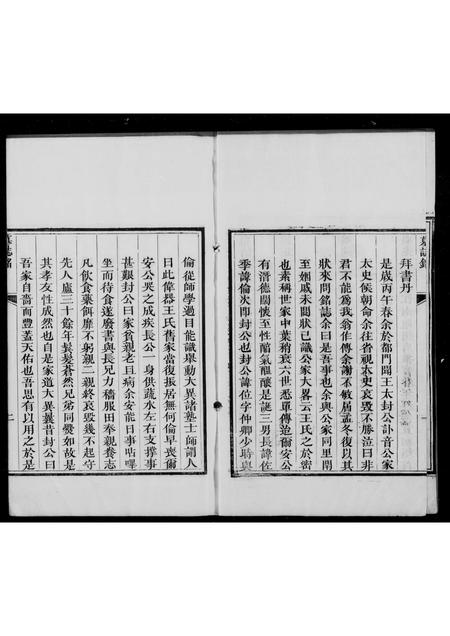 拜書丹
是歲丙午春余於都門聞王太封公訃音公家
太史侯朝命余往省視太史哀毀不勝泣曰非
君不能爲我翁作傳余謝不敏居孟冬復以其
狀來問銘誌余曰是吾事也余與公家同里閈
至姻戚未閱狀已識公家大畧云王氏之於密
也素稱世家中葉稍衰六世悉單傳迨爾安公
有潛德闊懷至性醋氣醞釀是誕三男長諱佐
季諱倫次即封公也封公諱位字仲卿少時與
倫從師學過目能識舉動大異諸塾士師謂人
曰此偉器王氏舊家當復振居無何倫早喪爾
安公哭之成疾長公一身供蔬水左右支撐事
甚艱封公曰家貧親老且病余安能日事呫嗶
坐而待食遂廢書與長兄力穡服田奉親養志
凡飲食藥餌靡不躬親二親終哀毀幾不起守
先人廬三十餘年鬚髮蒼然兄弟同爨如故是
其孝友性成然也自是家道大異曩昔封公曰
吾家自嗇而豐蓋天佑也吾思有以用之於是
墓誌銘
墓誌銘